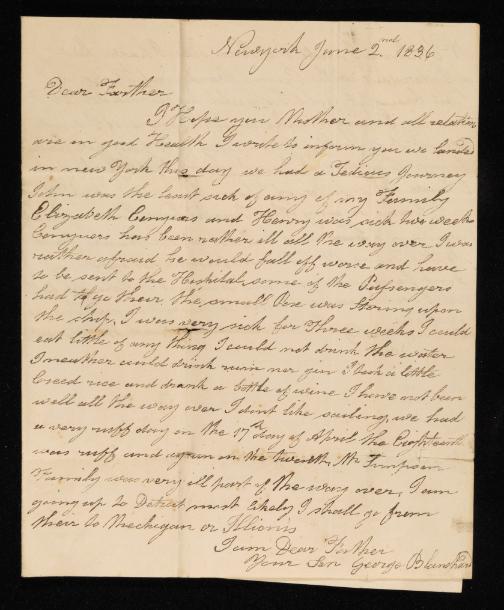 Newyork June 2nd 1836
Dear Farther
I Hope you Mother and all relation
are in good Health I write to inform you we landed
in new York this day we had a Tedieus Journey
John was the least sick of any of my Family
Elizabeth Conyars and Henry was sick two weeks
Conyuers has been rather ill all the way over I was
rather afraid he would fall off worse and have
to be sent to the Hospital some of the Passengers
had to go their the small Pox was storing upon
the ship. I was very sick for three weeks I could
eat little of any thing I could not drink the water
I neather could drink rum nor gin I took a little
biced rice and drank a bottle of wine I have not been
well all the way over I dont like sailing, we had
a very ruff day on the 17th day of April the Eighteenth
was ruff and agan on the twenth, Mr Timpson
Family was very ill part of the way over, I am
going up to Detroit most likely I shall go from
their to Mechigan or Illionis
I am Dear Farther
Your Son George Blanshard